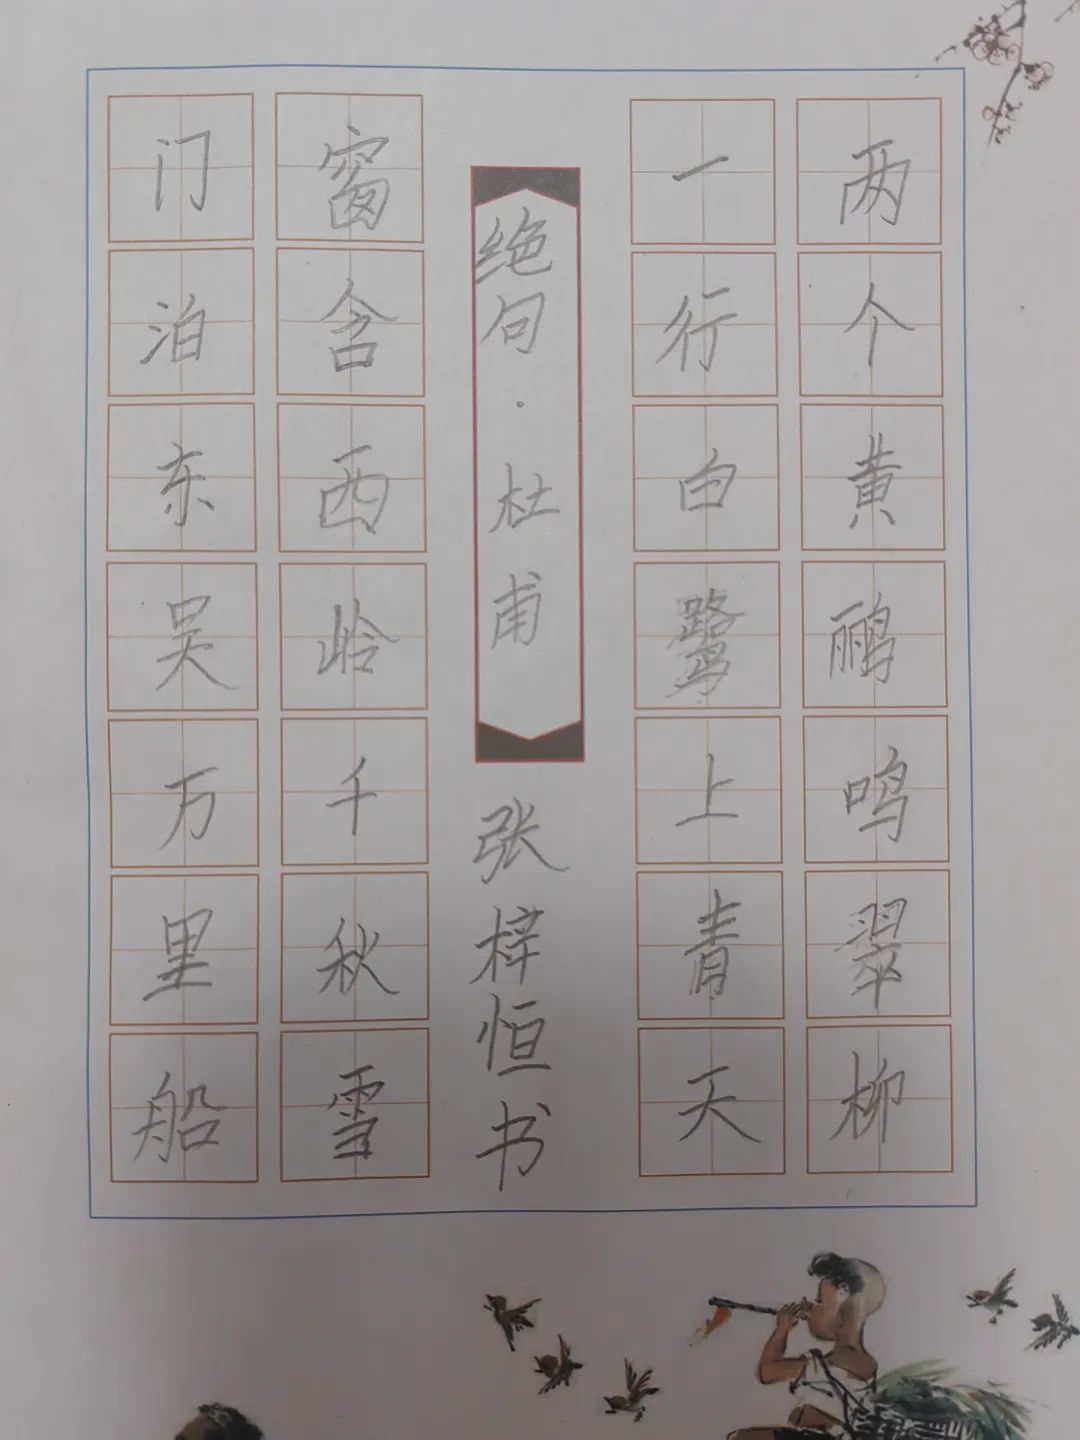 两个黄鹂鸣翠柳
一行白鹭上青天
绝句·杜甫
张梓恒书
窗含西岭千秋雪
门泊东吴万里船